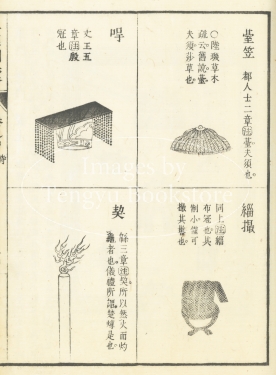 臺笠
都人士二章註臺夫須也。
○陸璣草木
疏云舊說臺
夫須莎草也。
緇撮
同上註緇
布冠也其
制小僅可
撮其髻也。
冔
文王五
章註殷
冠也
契
緜三章註契所以然火而灼
龜者也儀禮所謂楚焞是也
Images by
Tengyu Bookstore